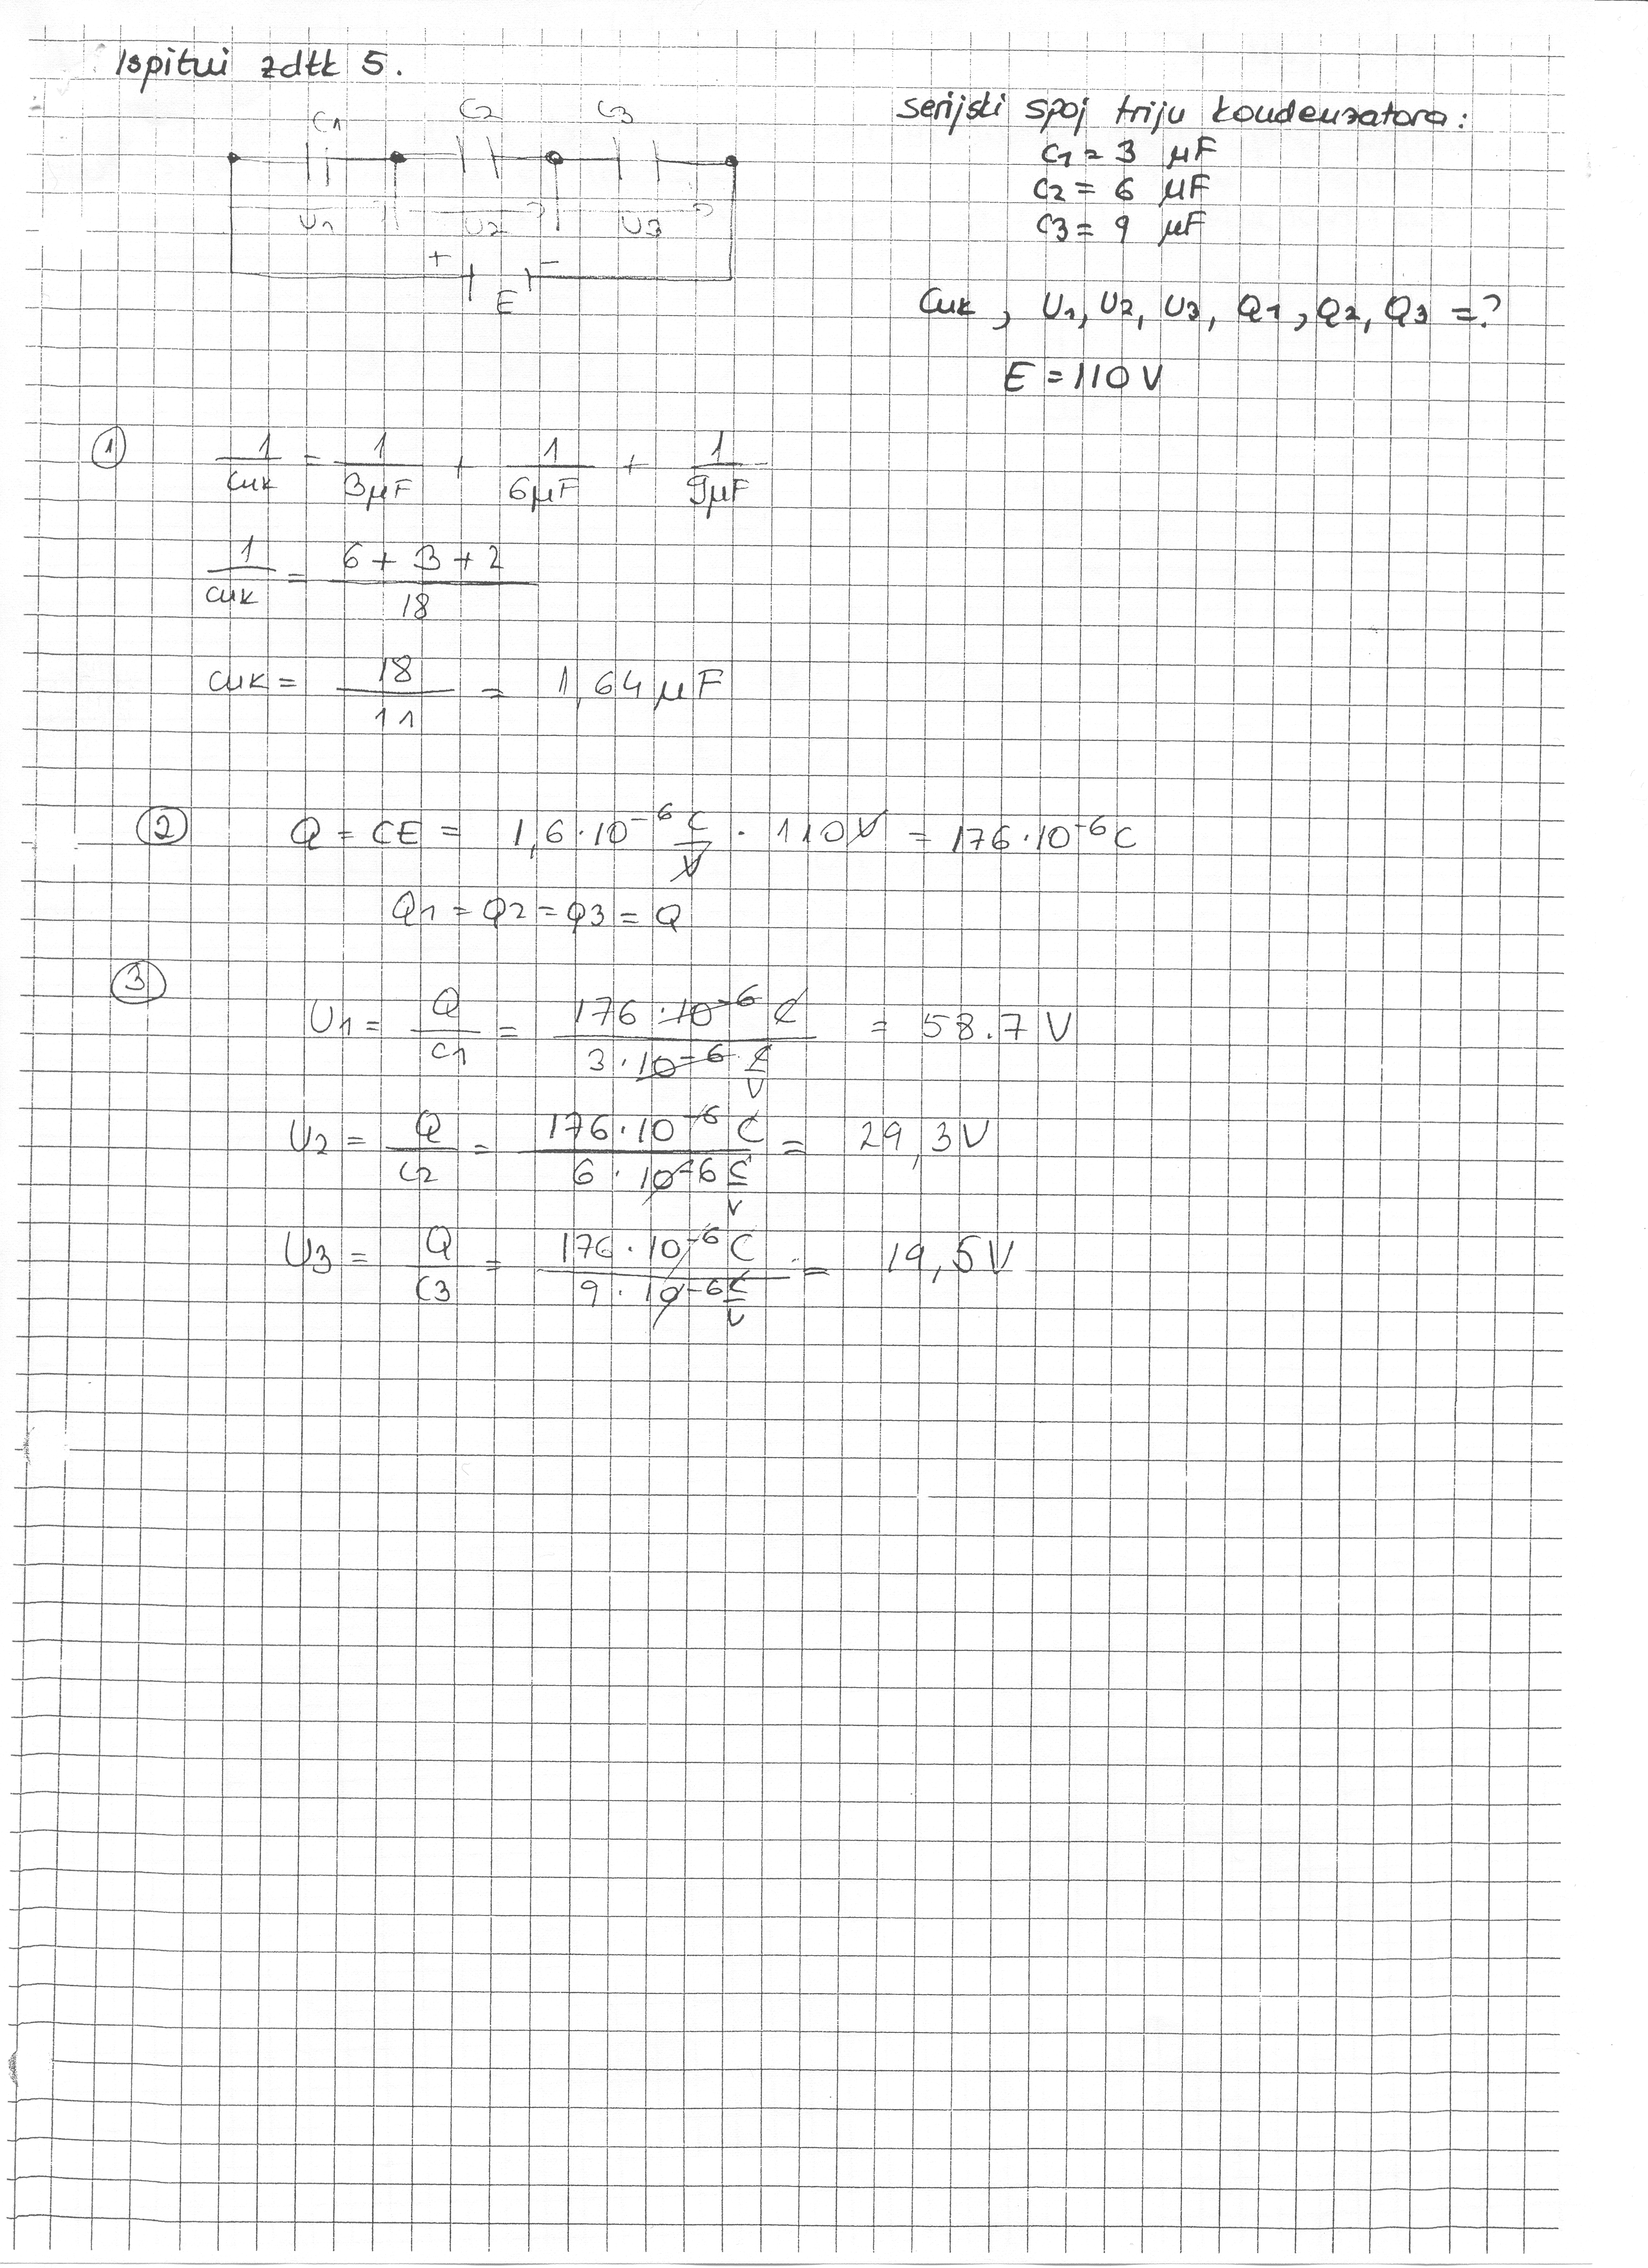 Ispitni zdtk 5.
C1 C2 C3
U1 U2 U3
+ -
E
serijski spoj triju kondenzatora:
C1 = 3 μF
C2 = 6 μF
C3 = 9 μF
Cuk, U1, U2, U3, Q1, Q2, Q3 = ?
E = 110 V
① 1/Cuk = 1/3μF + 1/6μF + 1/9μF
1/Cuk = 6 + 3 + 2/18
Cuk = 18/11 = 1,64 μF
② Q = CE = 1,6 · 10⁻⁶ C/V · 110 V = 176 · 10⁻⁶ C
Q1 = Q2 = Q3 = Q
③
U1 = Q/C1 = 176 · 10⁻⁶ C/3 · 10⁻⁶ C/V = 58.7 V
U2 = Q/C2 = 176 · 10⁻⁶ C/6 · 10⁻⁶ C/V = 29,3 V
U3 = Q/C3 = 176 · 10⁻⁶ C/9 · 10⁻⁶ C/V = 19,5 V